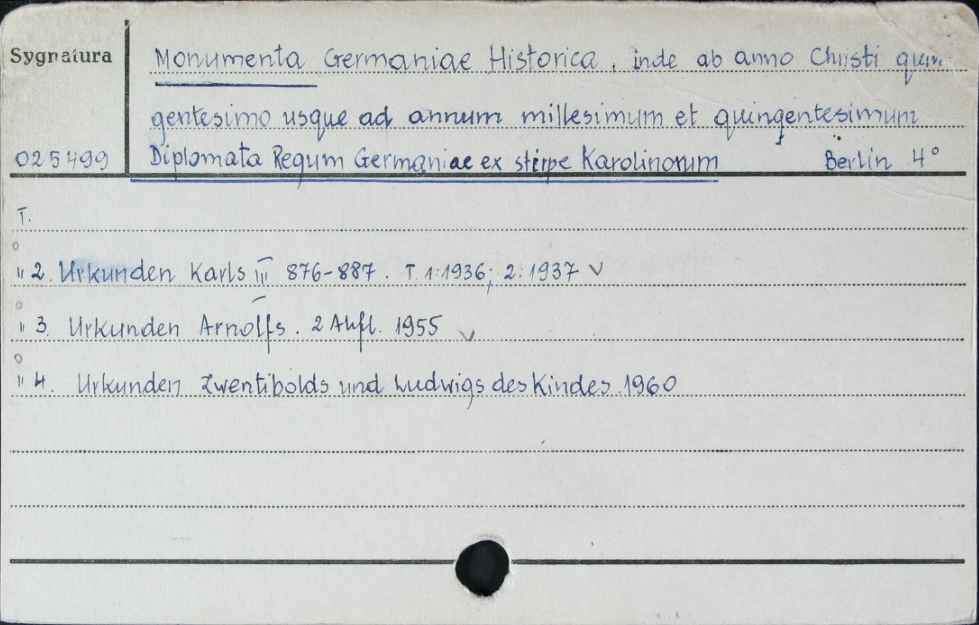 Sygnatura
Monumenta Germaniae Historica, inde ab anno Christi quin
gentesimo usque ad annum millesimum et quingentesimum
025499 Diplomata Regum Germaniae ex stirpe Karolinorum Berlin 4°
T.
" 2. Urkunden Karls III 876-887. T. 1:1936; 2:1937 √
" 3. Urkunden Arnolfs. 2 Aufl. 1955 √
" 4. Urkunden Zwentibolds und Ludwigs des Kindes. 1960